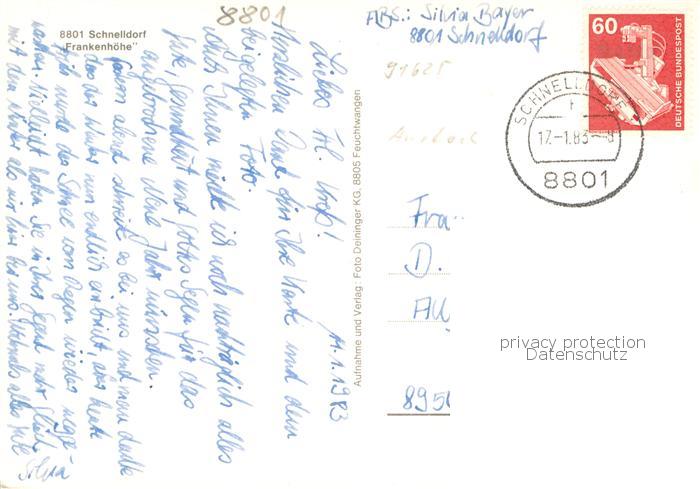 8801
8801 Schnelldorf
"Frankenhöhe"
ABS.: Silvia Bayer
8801 Schnelldorf
91625
Ansbach
60
DEUTSCHE BUNDESPOST
SCHNELLDORF
17.-1.83-
8801
11.1.1983
Liebes Frl.
Herzlichen Dank für Ihre Karte und dem
beigelegten Foto.
Ihnen möchte ich noch nachträglich alles
Gute, Gesundheit und Gottes Segen für das
angebrochene Neue Jahr wünschen.
abend schneite es bei uns und man dachte
das er nun endlich bleibt, aber heute
früh wurde der Schnee vom Regen wieder
Vielleicht haben Sie in Ihrer Gegend mehr Glück
mit dem als wir hier bei uns. Nochmals alles Gute
Silvia
Aufnahme und Verlag: Foto Deininger KG, 8805 Feuchtwangen
Fra
D.
AU
895
privacy protection
Datenschutz